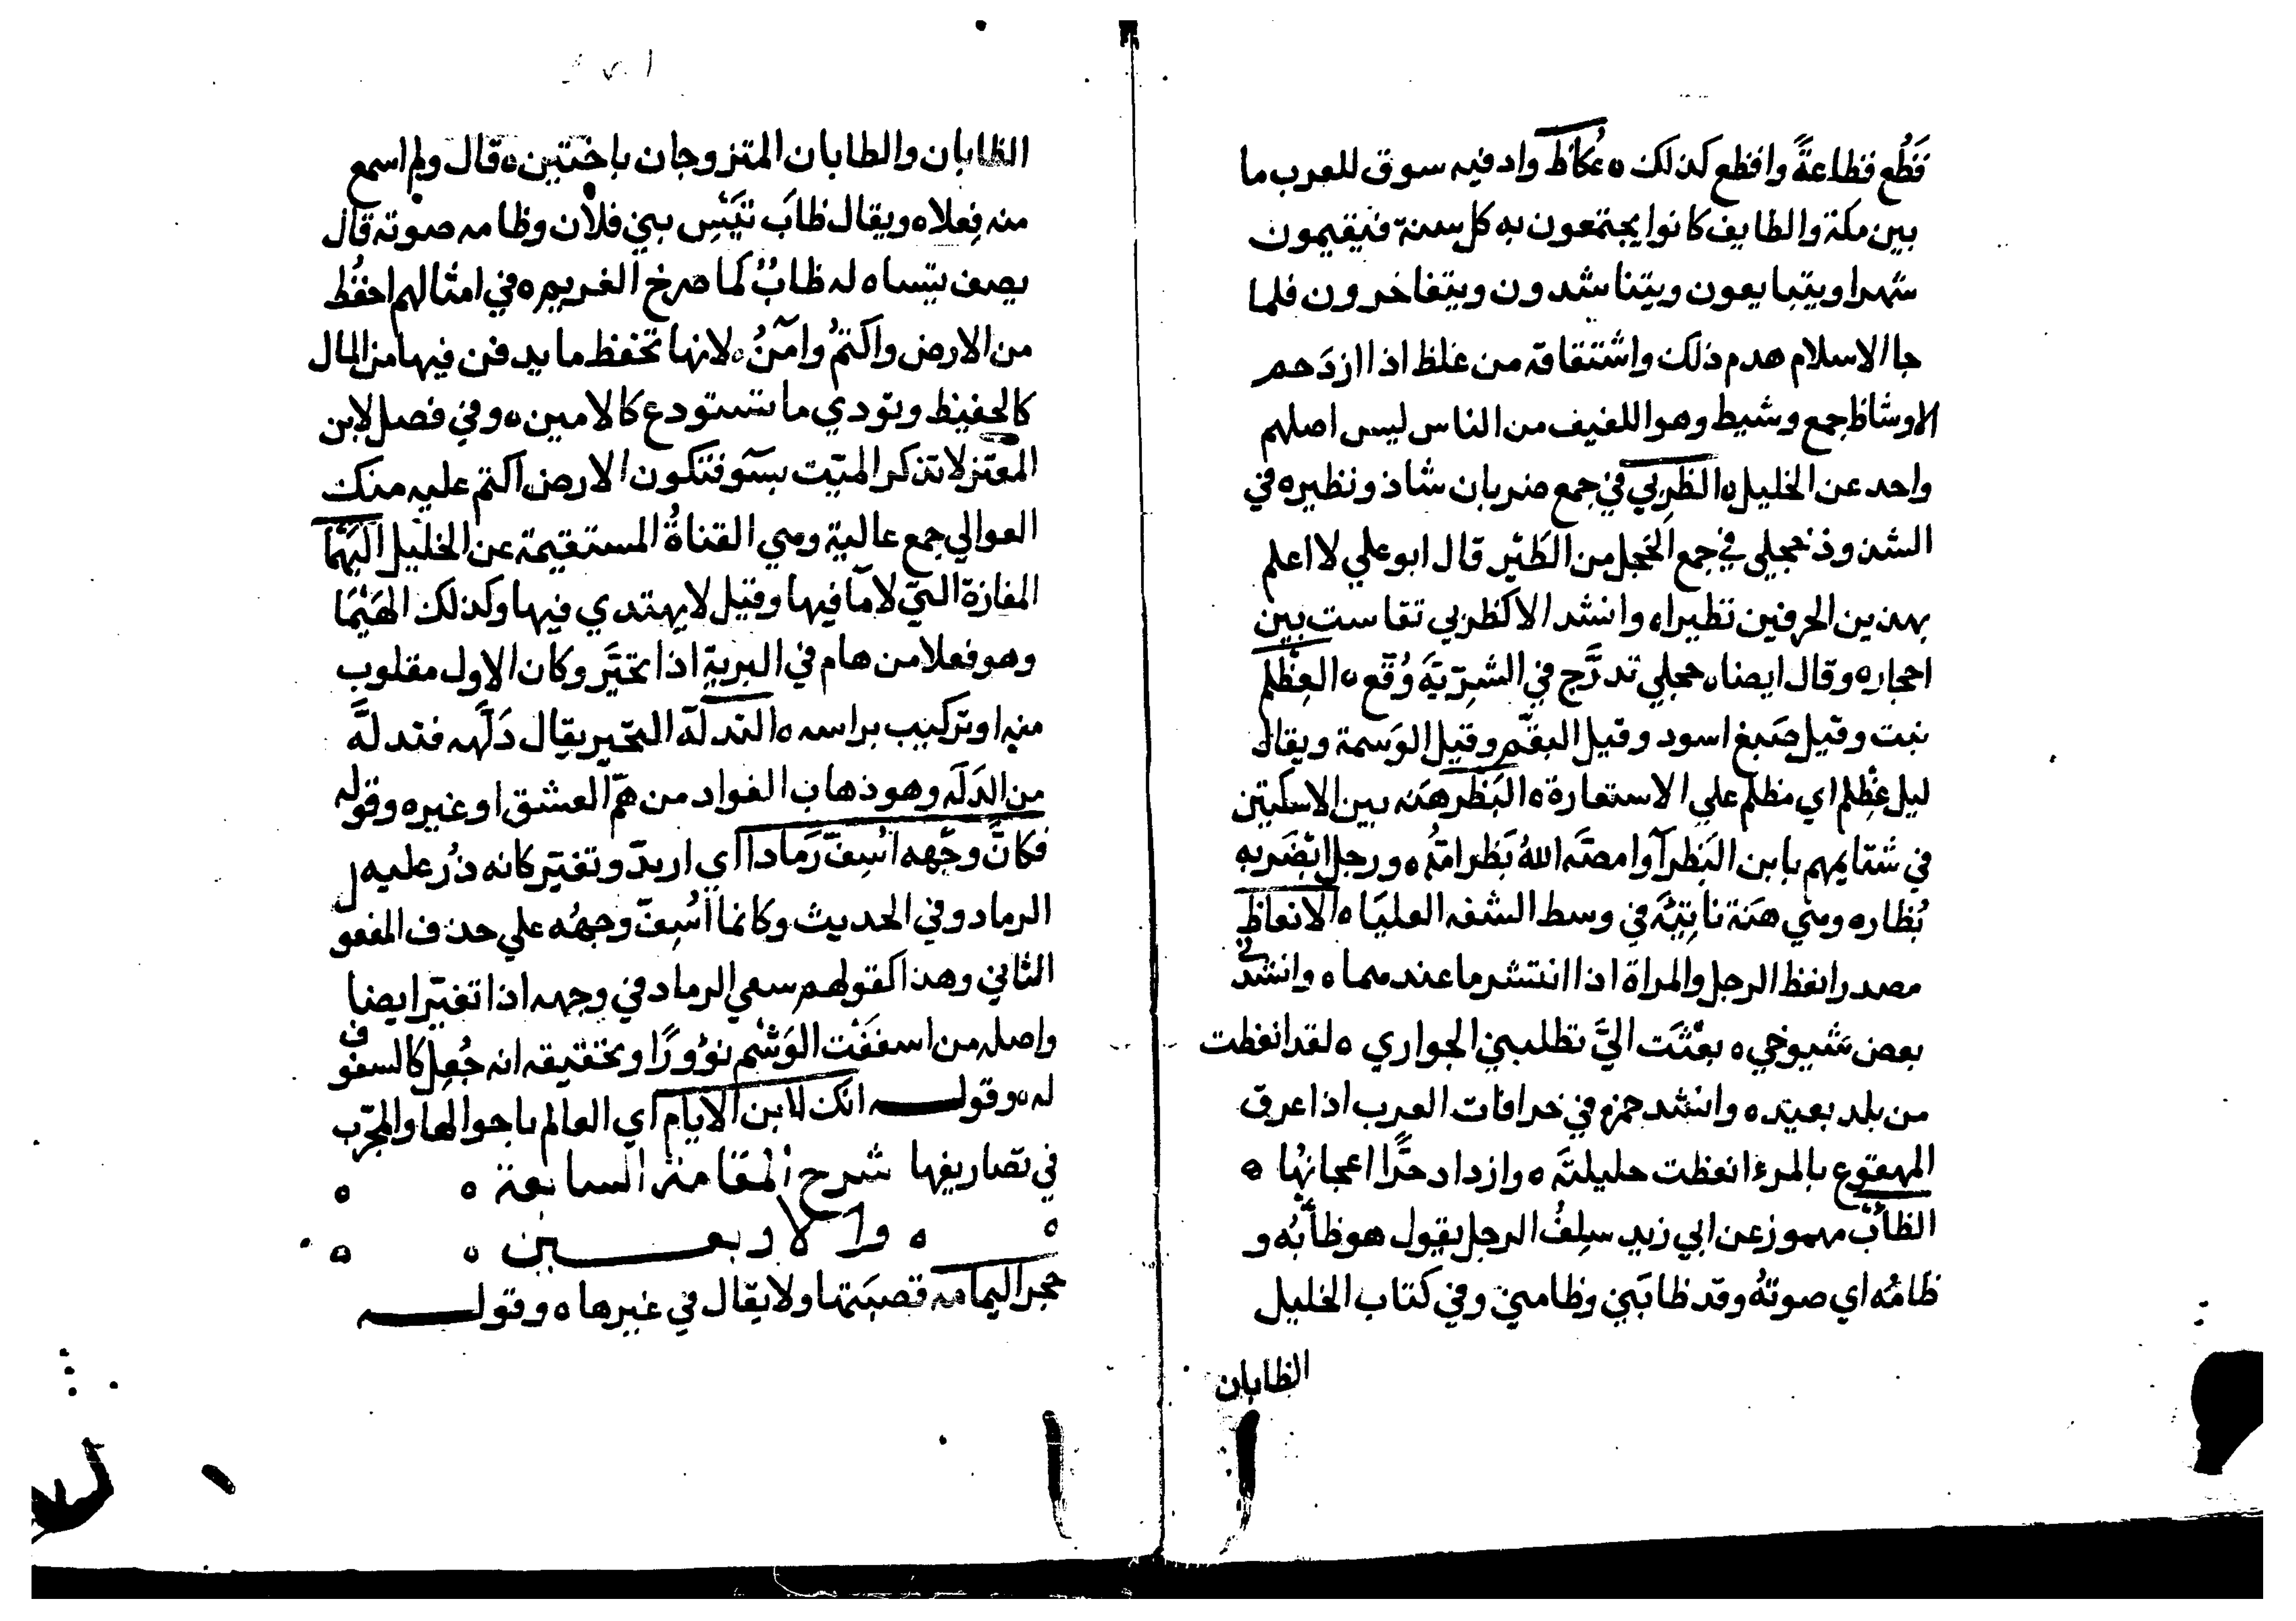 فَظُع فظاعةً وافظع كذلك ه عُكاظ واد فيه سوق للعرب ما
بين مكة والطايف كانوا يجتمعون به كل سنة فيقيمون
شهرا ويتبايعون ويتناشدون ويتفاخرون فلما
جا الاسلام هدم ذلك واشتقاقه من غلظ اذا ازدَحم
الاوشاظ جمع وشيط وهو اللفيف من الناس ليس اصلهم
واحد عن الخليل ه الظربي في جمع ضربان شاذ ونظيره في
الشذوذ حجلي في جمع الحجل من الطَيْر قال ابو علي لا اعلم
بهذين الحرفين نظيرا ه وانشد الا كظربي تفاست بين
احجاره وقال ايضا ه حجلي تدرَّج في الشرّيَّة وُقّع ه العِظْلم
نبت وقيل صَبغ اسود وقيل البقّم وقيل الوَسمة ويقال
ليل عظلم اي مظلم علي الاستعارة ه البَظْر هَنَه بين الاسكتين
في شتايمهم يا بن البَظرآ وامصّه اللهُ بَظر امّه ه ورجل ابْضَر به
بُظاره وهي هَنة ناتِيَّة في وسط الشفه العليَا ه الانعاظ
مصدر انعظ الرجل والمراة اذا انتشر ما عندهما ه وانشدَني
بعض شيوخي ه بعْثَت اليَّ تطلبني الجواري ه لقد انعظت
من بلد بعيد ه وانشد حمزة في خرافات العرب اذا عرق
المهقوع بالمرء انعظت حليلتَه ه وازداد حَرًّا عجانُها ه
الظأبُ مهموز عن ابي زيد سلِفُ الرجل يقول هو ظأبُه و
ظامُه اي صوتهُ وقد ظابَني وظامني وفي كتاب الخليل
الظابان
الظابان والظابان المتزوجان باختين ه قال ولم اسمع
منه فِعلا ه ويقال ظابَ تَيَّسِ بني فلان وظامه صوته قال
يصف تيسا ه له ظابٌ كما صرخ الغريم ه في امثالهم احفَظ
من الارض واكتمُ وآمنُ ه لانها تحفظ ما يدفن فيها من المال
كالحفيظ وتودي ما تستودع كالامين ه وفي فصل لابن
المعتز لا تذكر الميّت بسَو فتكون الارض اكتم عليه منك
العوالي جمع عالية وهي القناةُ المستقيمة عن الخليل اليَهْمَا
المفازة التي لا مآ فيها وقيل لا يهتدي فيها وكذلك الهَيْمَا
وهو فعلا من هام في البرية اذا تحيَّر وكان الاول مقلوب
منه او تركيب براسه ه التدلّه التحيّر يقال دَلَّهه فتدلَّه
من الدَلَه وهو ذهاب الفواد من همّ العشق او غيره وقوله
فكانَّ وجهه اسِفّ رَمادا اي اربدّ وتغيّر كانه ذُر عليه
الرماد وفي الحديث وكانما اُسِفّ وجهُه علي حذف المفعول
الثاني وهذا كقولهم سعي الرماد في وجهه اذا تغيّر ايضا
واصله من اسففَتْ الوَشْم نؤورًا وتحقيقه انه جُعِل كالسفوف
له ه وقولـه انك لابن الايام اي العالم باحوالها والمجرّب
في تصاريفها شرح المقامة السابعة ه ه
ه ه والاربعـين ه ه
حجر اليمامه قصبَتها ولا يقال في غيرها ه وقولـه